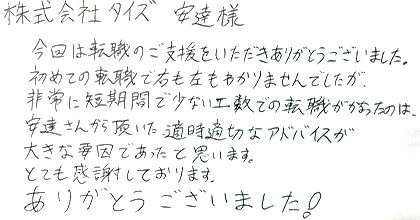 株式会社タイズ 安達様
今回は転職のご支援をいただきありがとうございました。
初めての転職で右も左もわかりませんでしたが、
非常に短期間で少ない工数での転職がかなったのは、
安達さんから頂いた適時適切なアドバイスが
大きな要因であったと思います。
とても感謝しております。
ありがとうございました!